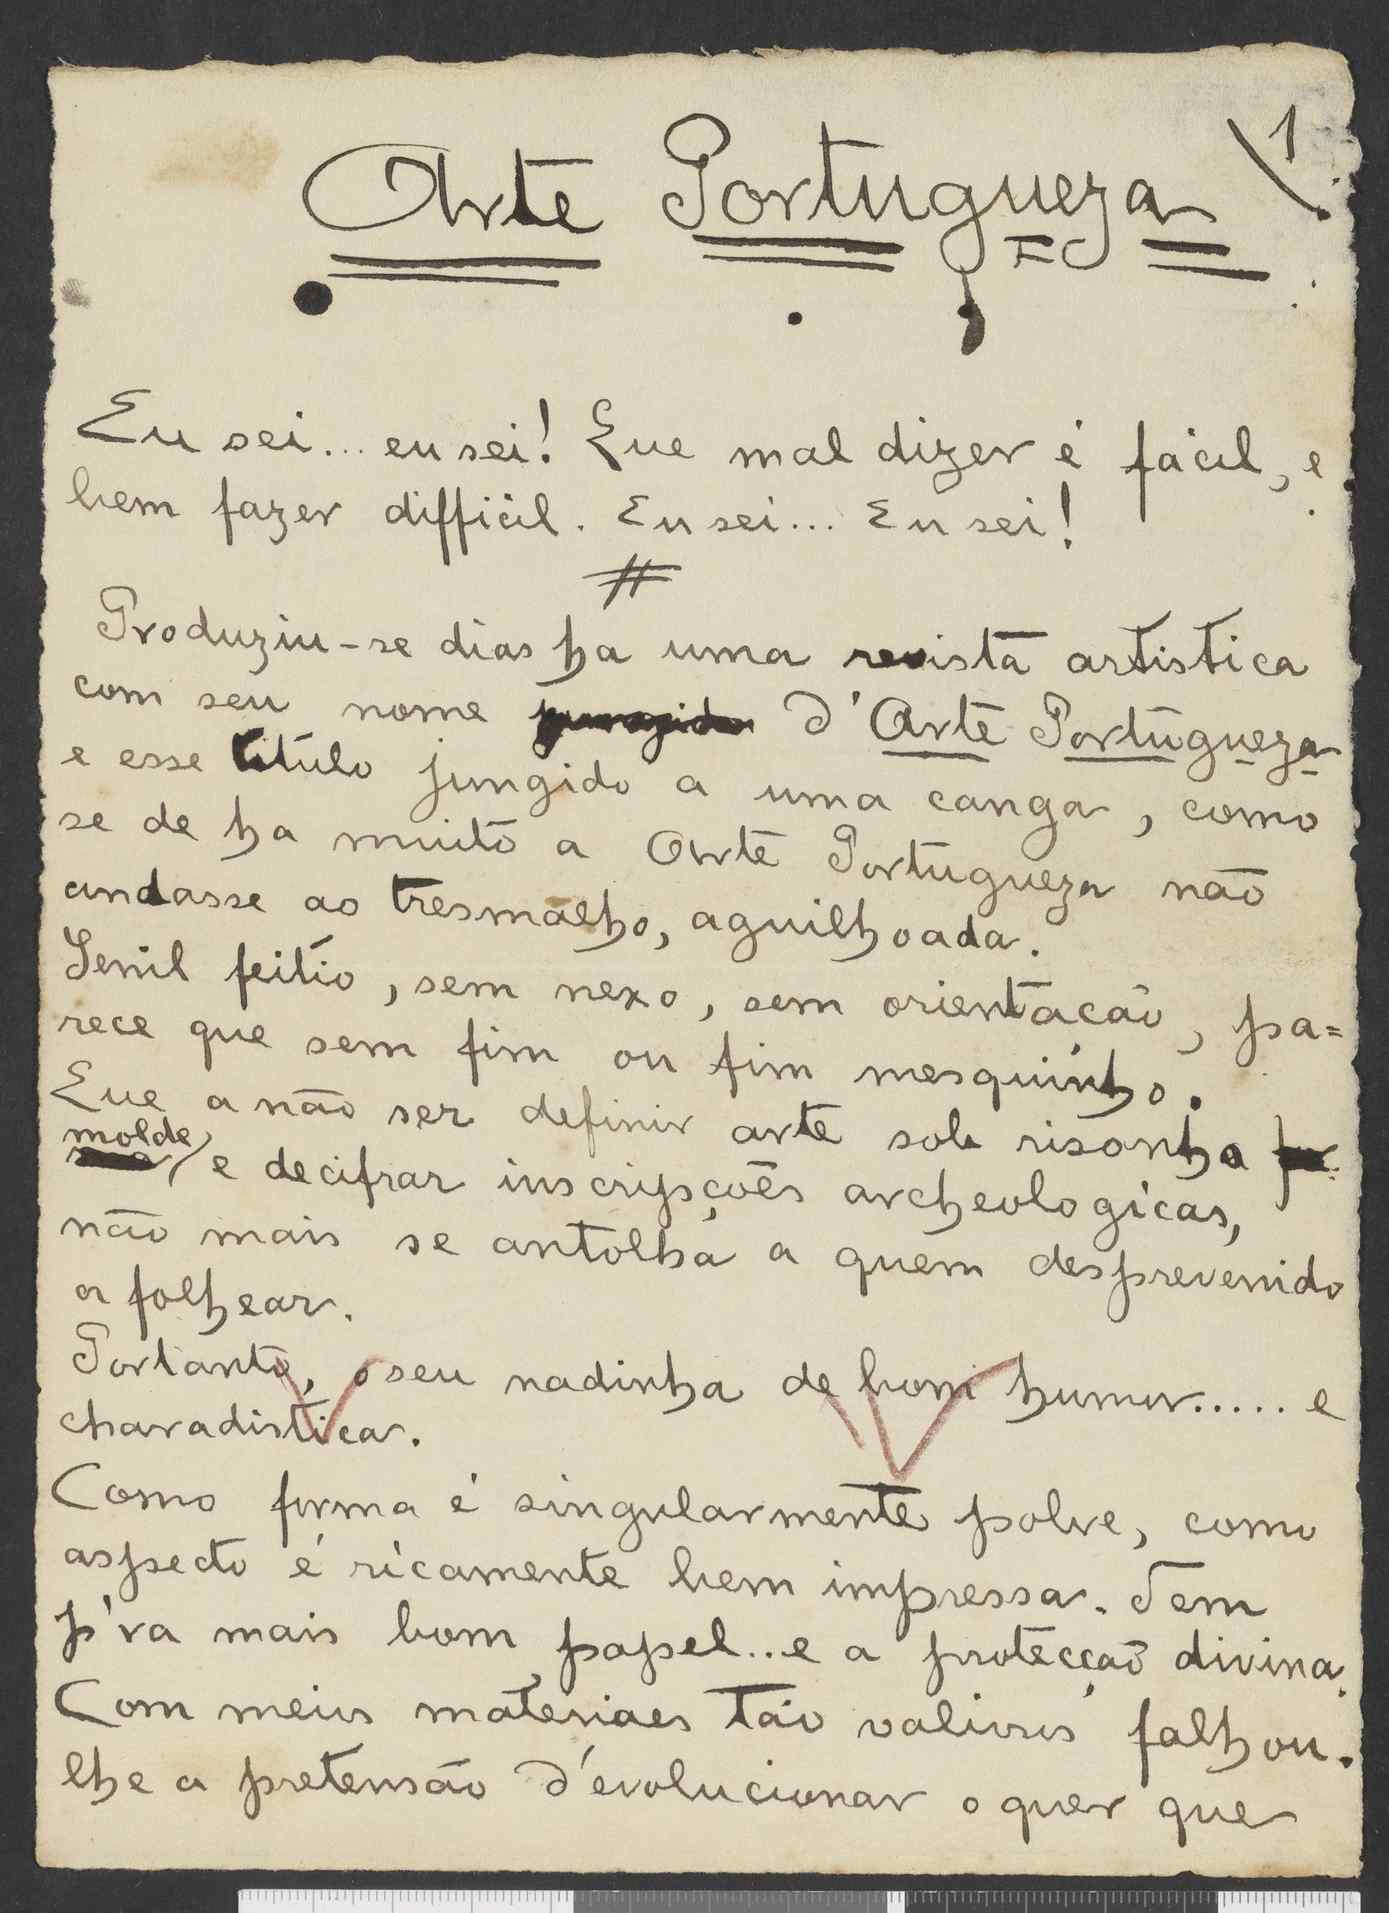 1
Arte Portugueza
Eu sei... eu sei! Que mal dizer é fácil, e
bem fazer difficil. Eu sei... Eu sei!
Produziu-se dias ha uma revista artistica
com seu nome d'Arte Portugueza
e esse titulo jungido a uma canga, como
se de ha muito a Arte Portugueza não
andasse ao tresmalho, aguilhoada.
Senil feitio, sem nexo, sem orientação, pa=
rece que sem fim ou fim mesquinho.
Que a não ser definir arte sob risonho
molde, e decifrar inscripções archeologicas,
não mais se antolha a quem desprevenido
a folhear.
Portanto, o seu nadinha de bom humor..... e
charadistica.
Como forma é singularmente pobre, como
aspecto é ricamente bem impressa. Tem
p'ra mais bom papel... e a protecção divina.
Com meios materiaes tão valiosos falhou-
lhe a pretensão d'evolucionar o quer que